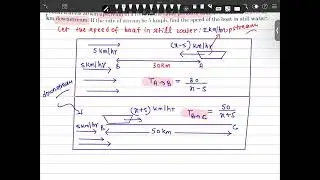 km downstream. If the rate of stream be 5 kmph, find the speed of the boat in still water?
Let the speed of boat in still water: x km/hr
upstream
5 km/hr
(x-5) km/hr
B
A
30 km
5 km/hr
T A→B = 30 / x-5
downstream
(x+5) km/hr
T B→C = 50 / x+5
5 km/hr
B
C
50 km